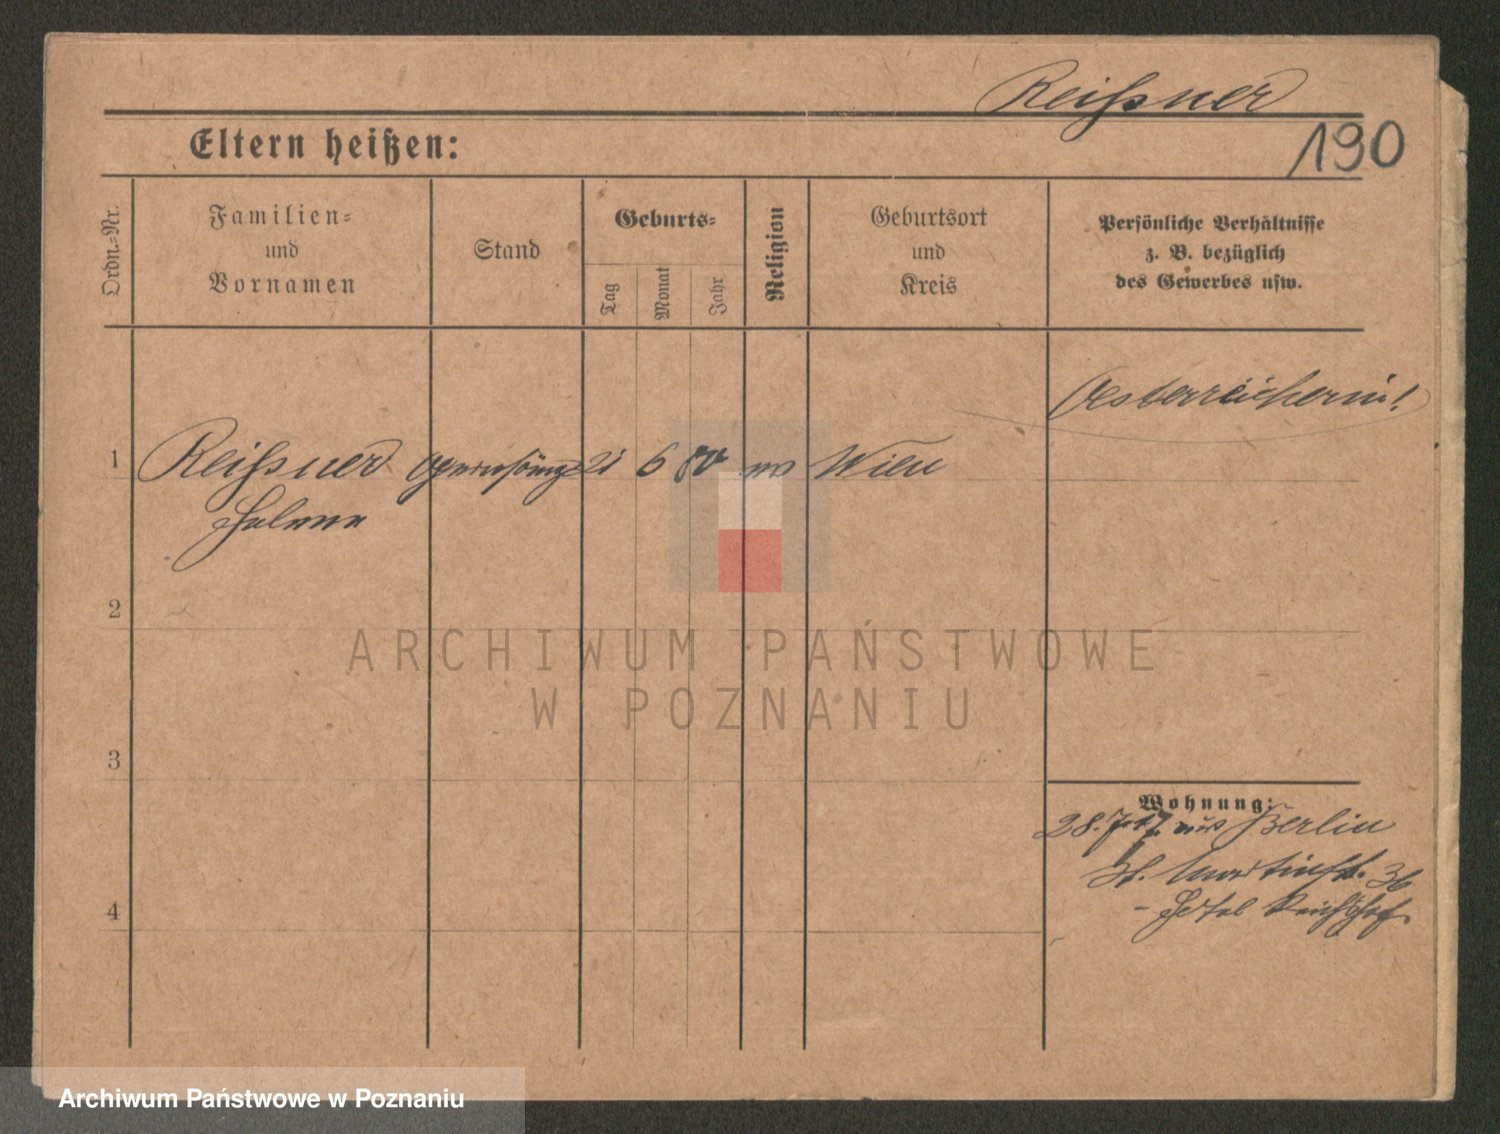 Reißner
190
Eltern heißen:
Ordn.=Nr.
Familien=
und
Vornamen
Stand
Geburts=
Tag
Monat
Jahr
Religion
Geburtsort
und
Kreis
Persönliche Verhältnisse
z. B. bezüglich
des Gewerbes usw.
Oesterreicherin!
1 Reißner 21 6 80 Wien
Helene
2
3
4
Wohnung:
28. 7. 17. aus Berlin
St. Martinst. 36
- Hotel Reichshof.
ARCHIWUM PAŃSTWOWE
W POZNANIU
Archiwum Państwowe w Poznaniu